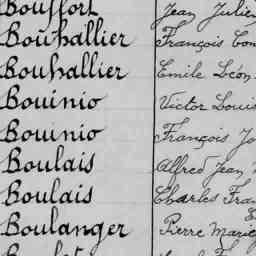 Bouffort Jean Julien
Bouhallier François
Bouhallier Emile Léon
Bouinio Victor Louis
Bouinio François
Boulais Alfred Jean
Boulais Charles
Boulanger Pierre Marie